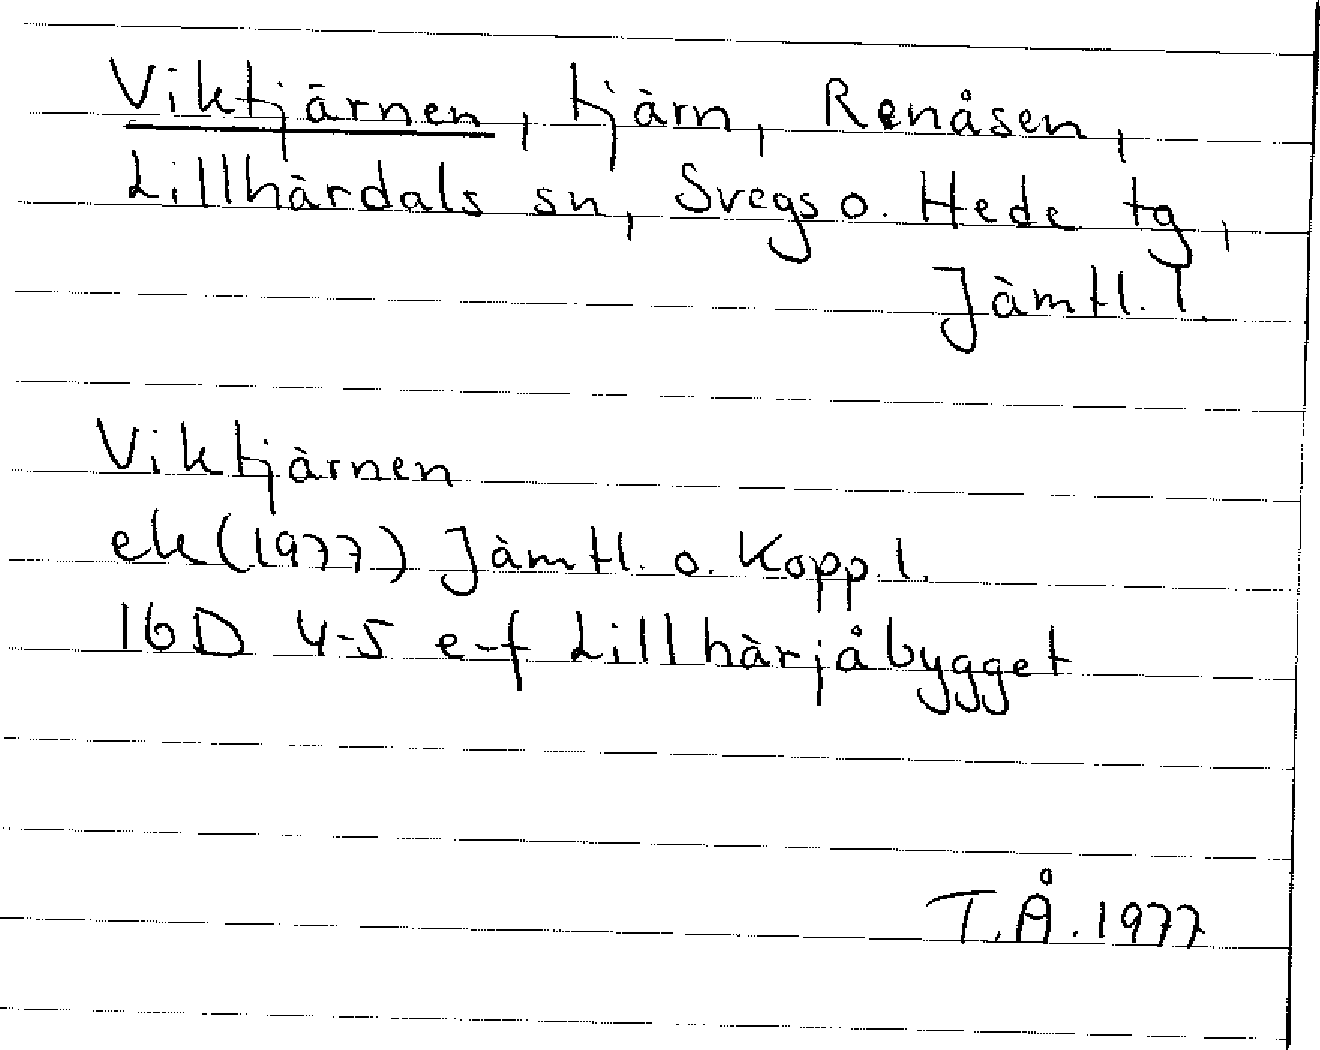 Viktjärnen, tjärn, Renåsen,
Lillhärdals sn, Svegs o. Hede tg,
Jämtl. l.
Viktjärnen
ek (1977) Jämtl. o. Kopp. l.
16D 4-5 e-f Lillhärjåbygget
T.Å. 1977